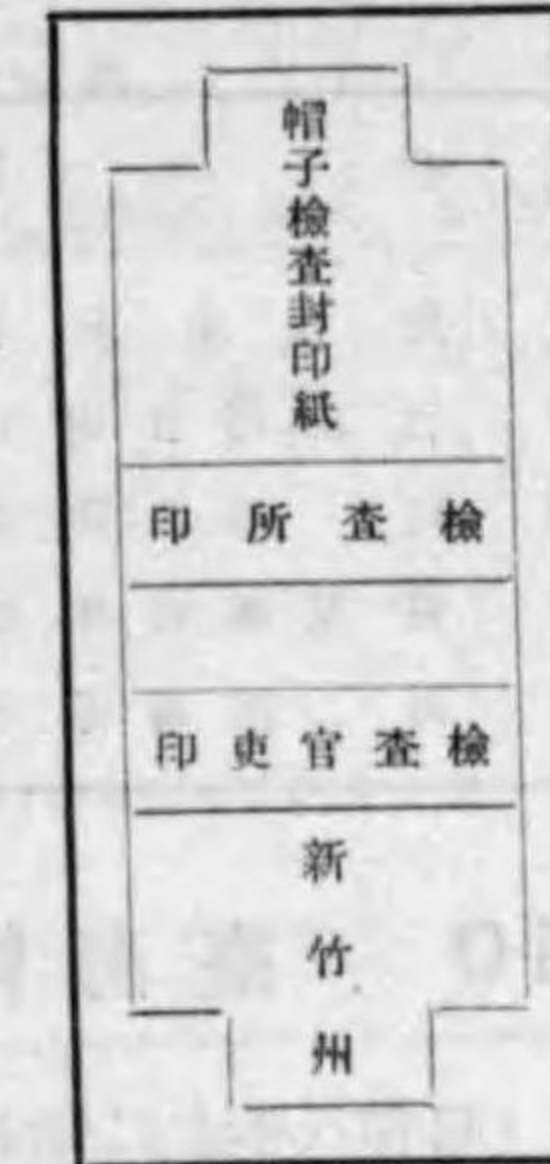 帽子檢查封印紙
檢查所印
檢查官吏印
新竹州